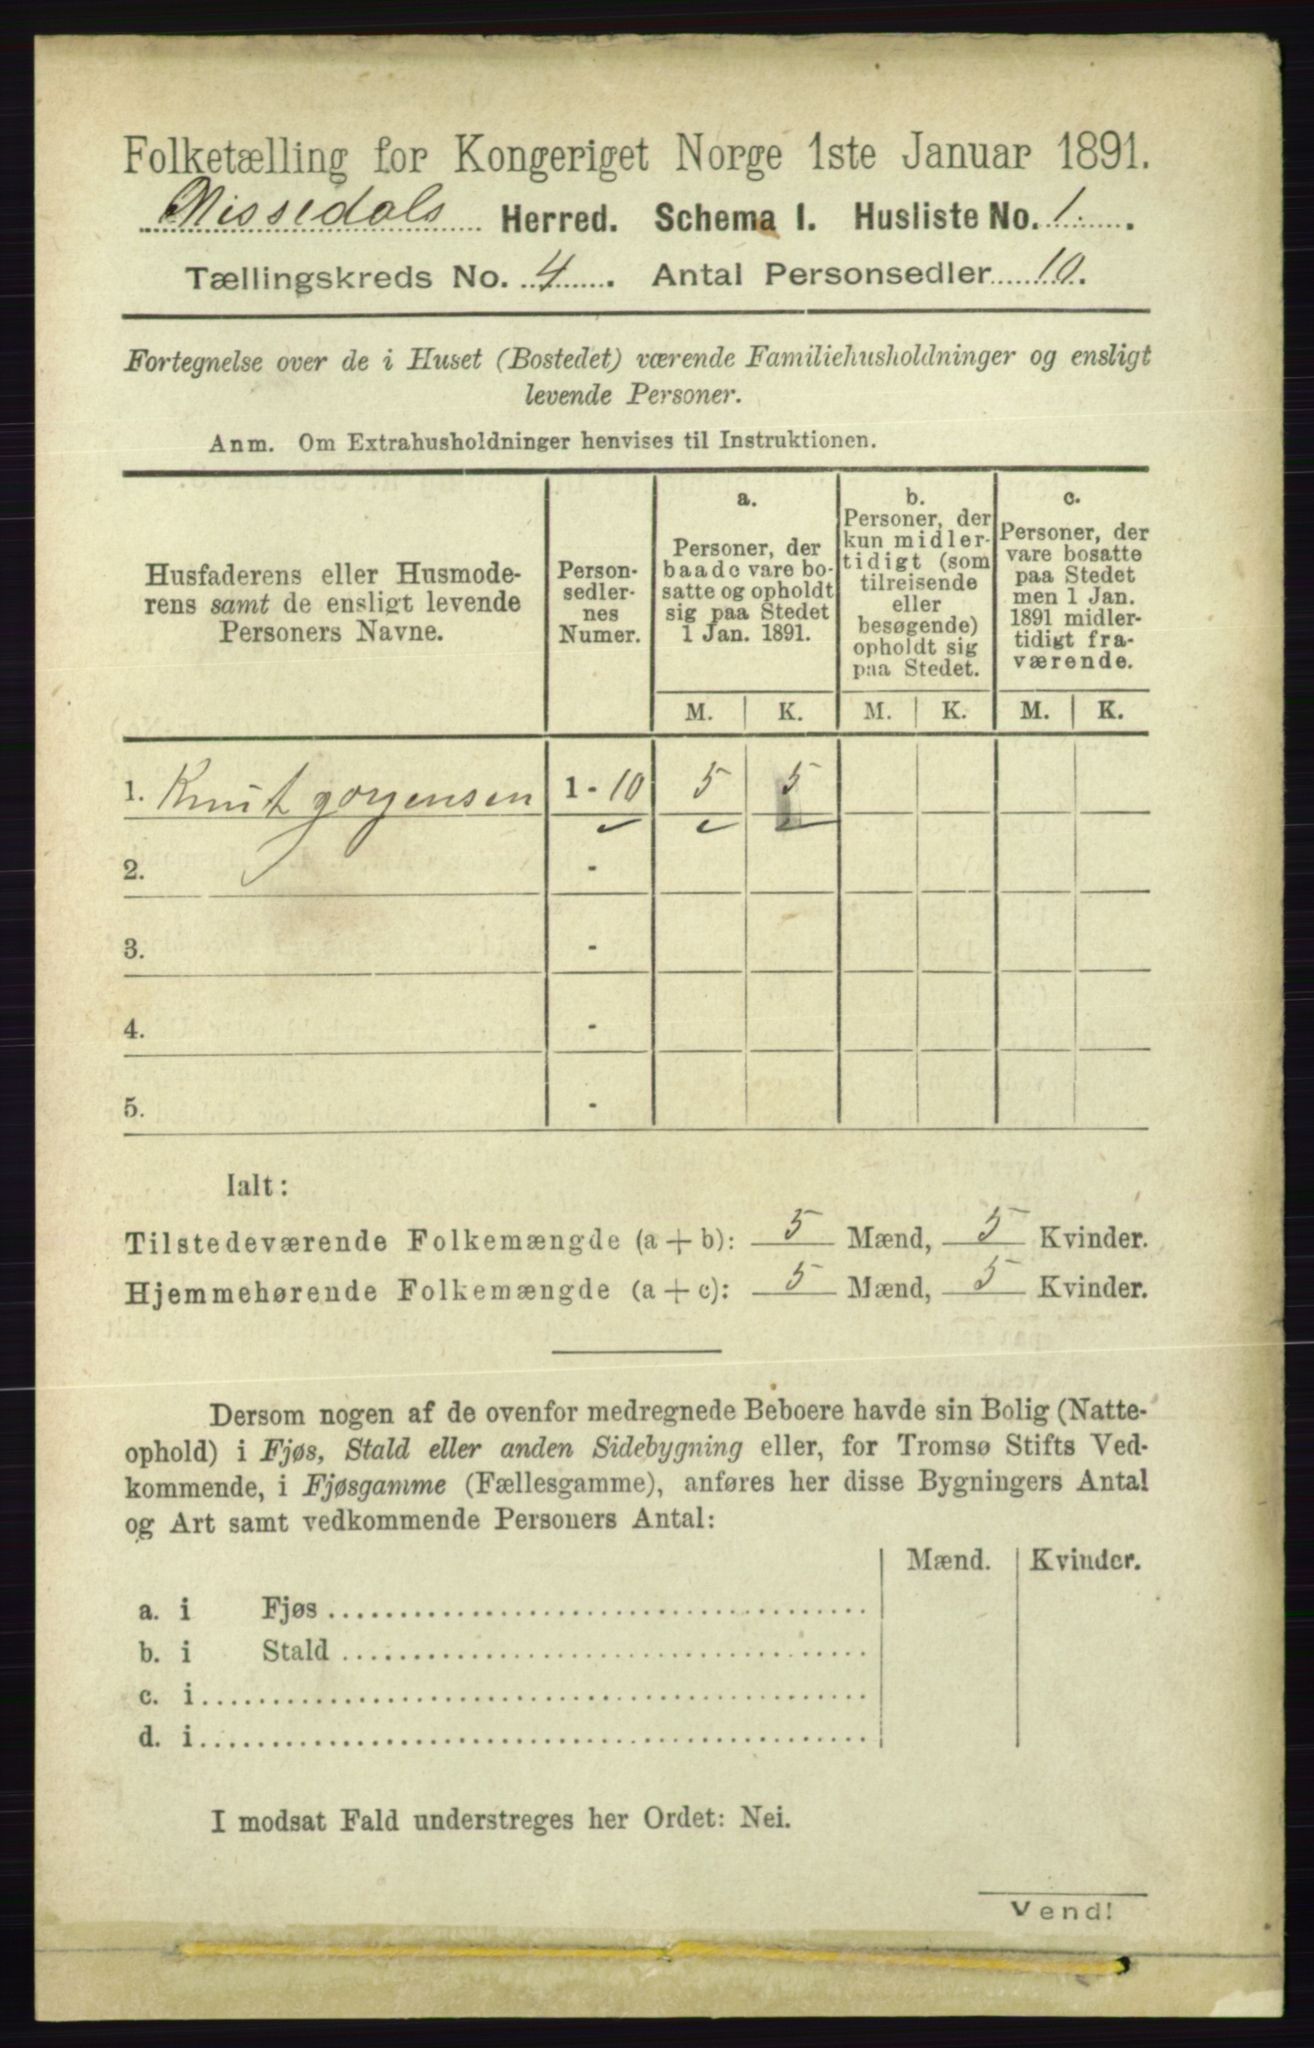 Folketælling for Kongeriget Norge 1ste Januar 1891.
Nissedals Herred. Schema I. Husliste No. 1.
Tællingskreds No. 4. Antal Personsedler 10.
Fortegnelse over de i Huset (Bostedet) værende Familiehusholdninger og ensligt
levende Personer.
Anm. Om Extrahusholdninger henvises til Instruktionen.
Husfaderens eller Husmode-
rens samt de ensligt levende
Personers Navne.
Person-
sedler-
nes
Numer.
a.
Personer, der
baade vare bo-
satte og opholdt
sig paa Stedet
1 Jan. 1891.
b.
Personer, der
kun midler-
tidigt (som
tilreisende
eller
besøgende)
opholdt sig
paa Stedet.
c.
Personer, der
vare bosatte
paa Stedet
men 1 Jan.
1891 midler-
tidigt fra-
værende.
M. K. M. K. M. K.
1. Knut Jørgensen 1 - 10 5 5
2. -
3. -
4. -
5. -
Ialt:
Tilstedeværende Folkemængde (a + b): 5 Mænd, 5 Kvinder.
Hjemmehørende Folkemængde (a + c): 5 Mænd, 5 Kvinder.
Dersom nogen af de ovenfor medregnede Beboere havde sin Bolig (Natte-
ophold) i Fjøs, Stald eller anden Sidebygning eller, for Tromsø Stifts Ved-
kommende, i Fjøsgamme (Fællesgamme), anføres her disse Bygningers Antal
og Art samt vedkommende Personers Antal:
Mænd. Kvinder.
a. i Fjøs
b. i Stald
c. i
d. i
I modsat Fald understreges her Ordet: Nei.
Vend!